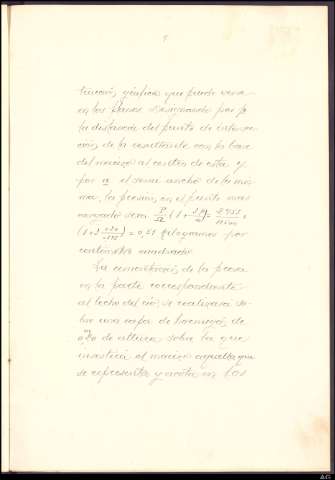 trucción, gráfica que puede verse
en los Planos Designando por p
la distancia del punto de intersec-
ción de la resultante con la base
del macizo al centro de esta y
por n el semi ancho de la mis-
ma, la presión en el punto mas
cargado sera P/Ω (1+ 3p/n) =
(1+3 ) = 0,51 kilogramos por
centimetro cuadrado.
La cimentación de la presa
en la parte correspondiente
al lecho del rio se realizará so-
bre una capa de hormigon de
de altura sobre la que
insistirá el macizo aquella que
se representa y acota en los
AG